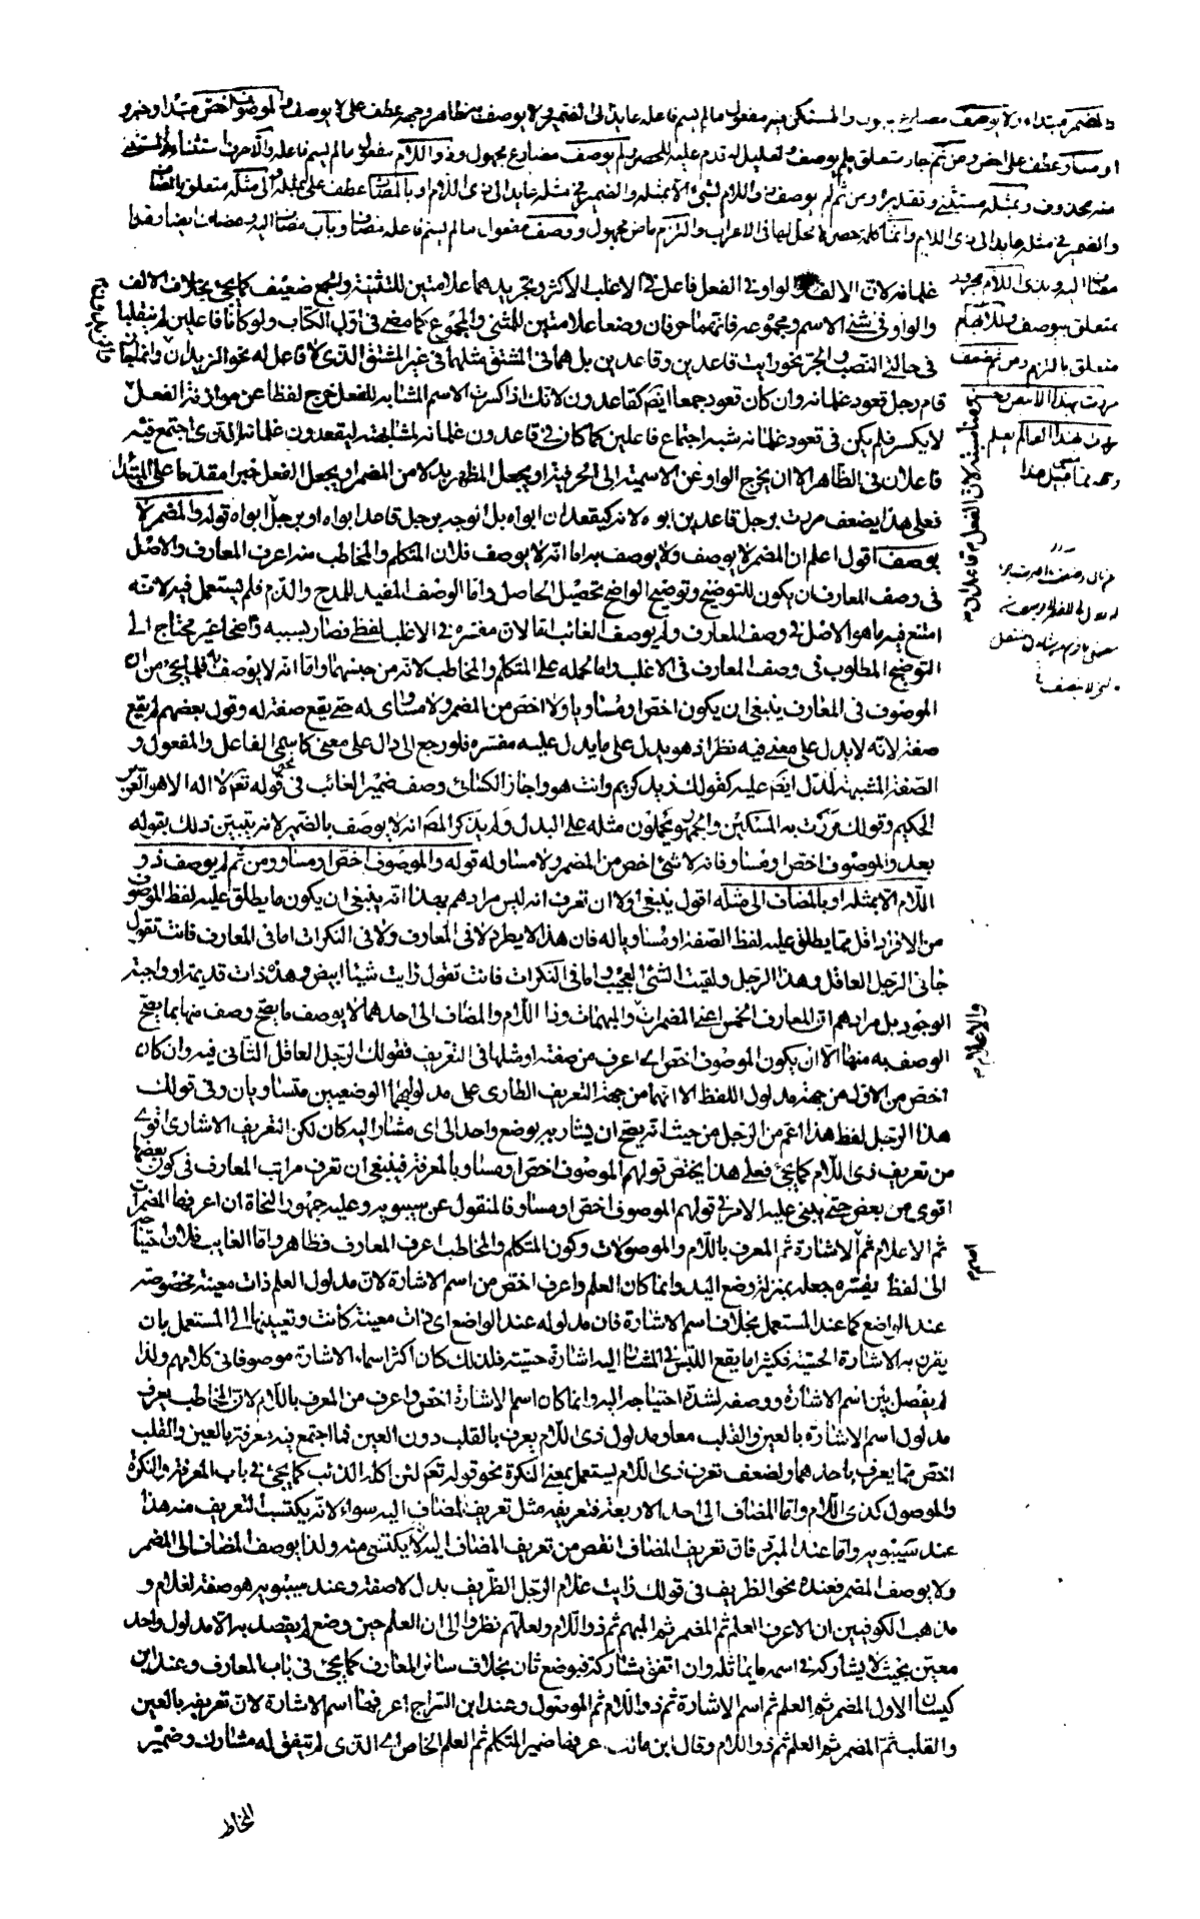 والمضمر مبتداء ولا يوصف مضارع مجهول والمستكن فيه مفعول مالم يسم فاعله عايد الى المضمر ولا يوصف به ظاهر وجمله عطف على لا يوصف والموصوف اخص مبتدا وخبر
او مساو عطف على اخص ومن ثم جار متعلق بلم يوصف وتعليل له قدم عليه للحصر ولم يوصف مضارع مجهول وذو اللام مفعول مالم يسم فاعله والا حرف استثناء والمستثنى
منه محذوف وبمثله مستثنى وتقديره ومن ثم لم يوصف ذو اللام لشئ الا بمثله والضمير في مثله عايد الى ذى اللام او بالمضاف عطف على بمثله والى مثله متعلق بالمضاف
والضمير في مثله عايد الى ذى اللام وانما كلمة حصر لا محل لها فى الاعراب والتزم ماض مجهول ووصف مفعول مالم يسم فاعله مضاف وباب مضاف اليه ومضاف ايضا وهذا
مضاف اليه وبذى اللام مجرور
متعلق بوصف وللابهام
متعلق بالتزم ومن ثم ضعف
مررت بهذا الابيض وحسن
بهذا العالم
غلمانه لان الالف والواو فى الفعل فاعل فى الاغلب الاكثر وتجريدهما علامتين للتثنية والجمع ضعيف كما يجئ بخلاف الالف
والواو فى مثنى الاسم ومجموعه فانهما حرفان وضعا علامتين للمثنى والمجموع كما مضى فى اول الكتاب ولو كانا فاعلين لم ينقلبا
فى حالتى النصب والجر نحو رايت قاعدين وقاعدين بل هما فى المشتق مثلهما فى غير المشتق الذى لا فاعل له نحو الزيدان وانما جاز
قام رجل قعود غلمانه وان كان قعود جمعا ايضا كقاعدون لانك اذا كسرت الاسم المشابه للفعل خرج لفظا عن موازنة الفعل
لا يكسر فلم يكن فى قعود غلمانه شبه اجتماع فاعلين كما كان فى قاعدون غلمانه لمشابهته ليقعدون غلمانه الذى اجتمع فيه
فاعلان فى الظاهر الا ان يخرج الواو عن الاسمية الى الحرفية او يجعل المظهر بدلا من المضمر او يجعل الفعل خبرا مقدما على المبتدا
فعلى هذا يضعف مررت برجل قاعدين ابواه لانه كيقعدان ابواه بل الوجه برجل قاعد ابواه او برجل ابواه قوله والمضمر لا
يوصف اقول اعلم ان المضمر لا يوصف ولا يوصف به اما انه لا يوصف فلان المتكلم والمخاطب منه اعرف المعارف والاصل
فى وصف المعارف ان يكون للتوضيح وتوضيح الواضح تحصيل الحاصل واما الوصف المفيد للمدح والذم فلم يستعمل فيه لانه
امتنع فيه ما هو الاصل فى وصف المعارف ولم يوصف الغائب اما لان مفسره فى الاغلب لفظى فصار بسببه واضحا غير محتاج الى
التوضيح المطلوب فى وصف المعارف فى الاغلب واما لحمله على المتكلم والمخاطب لانه من جنسهما واما انه لا يوصف به فلما يجئ من ان
الموصوف فى المعارف ينبغى ان يكون اخص او مساويا ولا اخص من المضمر ولا مساوى له حتى يقع صفة له وقول بعضهم لم يقع
صفة لانه لا يدل على معنى فيه نظر اذ هو يدل على ما يدل عليه مفسره فلو رجع الى دال على معنى كاسمى الفاعل والمفعول و
الصفة المشبهة لدل ايضا عليه كقولك زيد كريم وانت هو واجاز الكسائى وصف ضمير الغائب فى نحو قوله تعم لا اله الا هو العزيز
الحكيم وقولك مررت به المسكين والجمهور يحملون مثله على البدل ولم يذكر المصا انه لا يوصف بالضمير لانه يتبين ذلك بقوله
بعد والموصوف اخص او مساو فانه لا شئ اخص من المضمر ولا مساو له قوله والموصوف اخص او مساو ومن ثم لم يوصف ذو
اللام الا بمثله او بالمضاف الى مثله اقول ينبغى اولا ان تعرف انه ليس مرادهم بهذا انه ينبغى ان يكون ما يطلق عليه لفظ الموصوف
من الافراد اقل مما يطلق عليه لفظ الصفة او مساويا له فان هذا لا يطرد لا فى المعارف ولا فى النكرات اما فى المعارف فانت تقول
جائى الرجل العاقل وهذا الرجل ولقيت الشئ العجيب واما فى النكرات فانت تقول رايت شيئا ابيض وهذه ذات قديمة او واجبة
الوجود بل مرادهم ان المعارف الخمس اعنى المضمرات والاعلام والمبهمات وذا اللام والمضاف الى احدهما لا يوصف ما يصح وصف منها بما يصح
الوصف به منها الا ان يكون الموصوف اخص اى اعرف من صفته او مثلها فى التعريف فقولك الرجل العاقل الثانى فيه وان كان
اخص من الاول من جهة مدلول اللفظ الا انهما من جهة التعريف الطارى على مدلوليهما الوضعيين متساويان وفى قولك
هذا الرجل لفظ هذا اعم من الرجل من حيث انه يصح ان يشار به بوضع واحد الى اى مشار اليه كان لكن التعريف الاشارى اقوى
من تعريف ذى اللام كما يجئ فعلى هذا يختص قولهم الموصوف اخص او مساو بالمعرفة فينبغى ان تعرف مراتب المعارف فى كون بعضها
اقوى من بعض حتى ينبنى عليه الامر فى قولهم الموصوف اخص او مساو فالمنقول عن سيبويه وعليه جمهور النحاة ان اعرفها المضمرات
ثم الاعلام ثم اسم الاشارة ثم المعرف باللام والموصولات وكون المتكلم والمخاطب اعرف المعارف فظاهر واما الغايب فلان احتياجه
الى لفظ يفسره جعله بمنزلة وضع اليد وانما كان العلم واعرف اخص من اسم الاشارة لان مدلول العلم ذات معينة مخصوصة
عند الواضع كما عند المستعمل بخلاف اسم الاشارة فان مدلوله عند الواضع اى ذات معينة كانت وتعيينها الى المستعمل بان
يقرن به الاشارة الحسية فكثيرا ما يقع اللبس فى المشار اليه اشارة حسية فلذلك كان اكثر اسماء الاشارة موصوفا فى كلامهم ولذا
لم يفصل بين اسم الاشارة ووصفه لشدة احتياجه اليه وانما كان اسم الاشارة اخص واعرف من المعرف باللام لان المخاطب يعرف
مدلول اسم الاشارة بالعين والقلب معا ومدلول ذى اللام يعرف بالقلب دون العين فما اجتمع فيه معرفة بالعين والقلب
اخص مما يعرف باحدهما ولضعف تعرف ذى اللام يستعمل بمعنى النكرة نحو قوله تعم لئن اكله الذئب كما يجئ فى باب المعرفة والنكرة
والموصول كذى اللام واما المضاف الى احد الاربعة فتعريفه مثل تعريف المضاف اليه سواء لانه يكتسب التعريف منه هذا
عند سيبويه واما عند المبرد فان تعريف المضاف انقص من تعريف المضاف اليه لانه يكتسى منه ولذا يوصف المضاف الى المضمر
ولا يوصف المضمر فعنده نحو الظريف فى قولك رايت غلام الرجل الظريف بدل لا صفة وعند سيبويه هو صفة لغلام و
مذهب الكوفيين ان الاعرف العلم ثم المضمر ثم المبهم ثم ذو اللام ولعلهم نظروا الى ان العلم حين وضع لم يقصد به الا مدلول واحد
معين بحيث لا يشاركه فى اسمه ما يماثله وان اتفق مشاركة فبوضع ثان بخلاف سائر المعارف كما يجئ فى باب المعارف وعند ابن
كيسان الاول المضمر ثم العلم ثم اسم الاشارة ثم ذو اللام ثم الموصول وعند ابن السراج اعرفها اسم الاشارة لان تعريفه بالعين
والقلب ثم المضمر ثم العلم ثم ذو اللام وقال ابن مالك اعرفها ضمير المتكلم ثم العلم الخاص اى الذى لم يتفق له مشارك وضمير
المخاطب